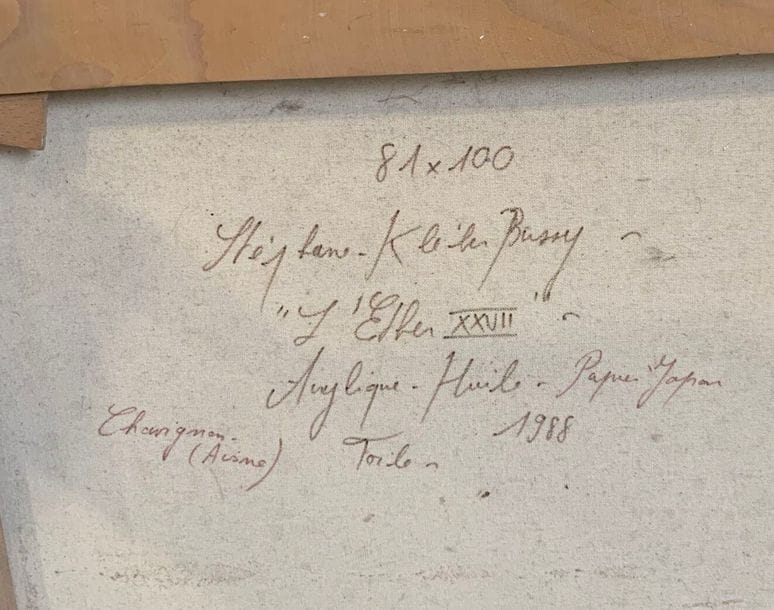 81 x 100
Stéphane - Kleiber Bussy -
"L'Ether XXVII" -
Acrylique - Huile - Papier Japon
Chavignon - 1988
(Aisne) Toile -